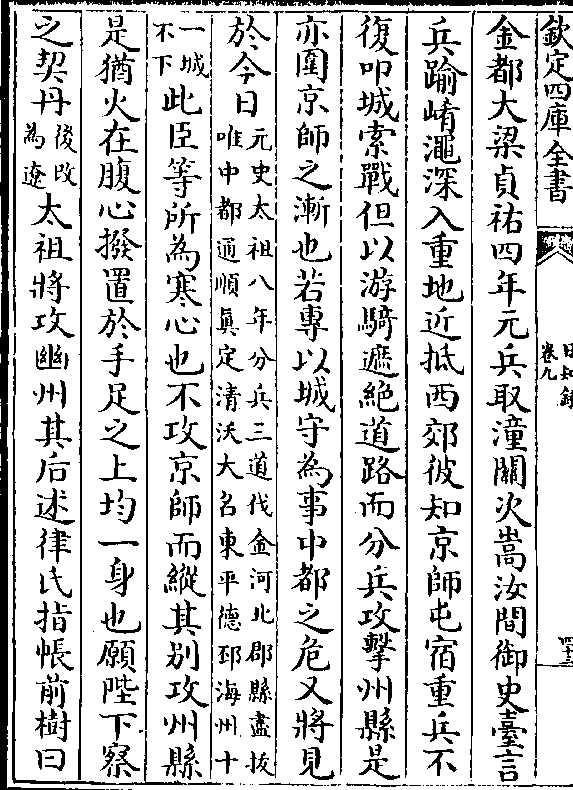 欽定四庫全書
日知錄
卷九
四十三
金都大梁貞祐四年元兵取潼關次嵩汝間御史臺言
兵踰崤澠深入重地近抵西郊彼知京師屯宿重兵不
復叩城索戰但以游騎遮絶道路而分兵攻擊州縣是
亦圍京師之漸也若專以城守為事中都之危又將見
於今日元史太祖八年分兵三道伐金河北郡縣盡拔
唯中都通順真定清沃大名東平德邳海州十
一城
不下此臣等所為寒心也不攻京師而縱其别攻州縣
是猶火在腹心撥置於手足之上均一身也願陛下察
之契丹後改
為遼太祖將攻幽州其后述律氏指帳前樹曰